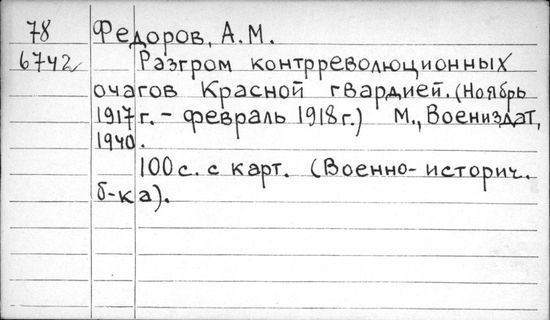 78 Федоров, А.М.
6742 Разгром контрреволюционных
очагов Красной гвардией. (Ноябрь
1917 г. - февраль 1918 г.) М., Воениздат,
1940.
100 с. с карт. (Военно-историч.
б-ка).